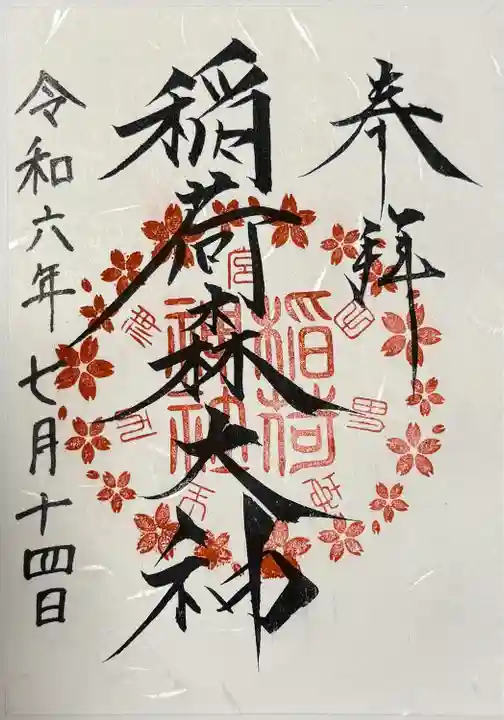 奉拝
稲荷森大神
令和六年七月十四日
稲荷神社